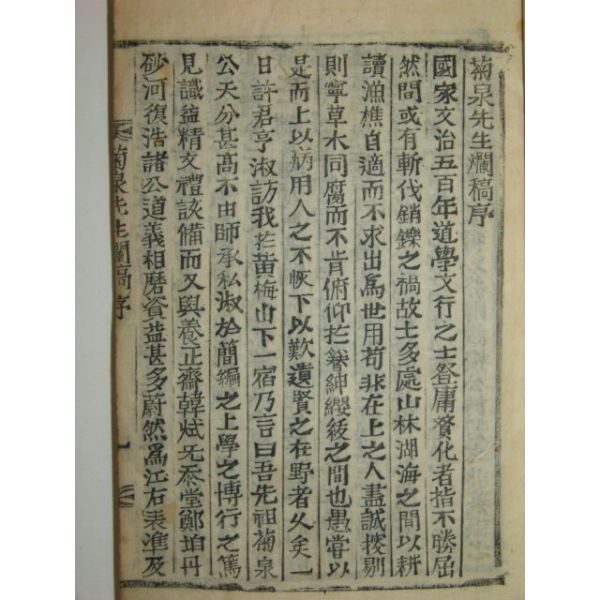 菊泉先生爛稿序
國家文治五百年道學文行之士登庸賛化者指不勝屈
然間或有斬伐銷鑠之禍故士多處山林湖海之間以耕
讀漁樵自適而不求出爲世用苟非在上之人盡誠搜剔
則寧草木同腐而不肯俯仰扵簪紳纓緌之間也愚嘗以
是而上以病用人之不恢下以歎遺賢之在野者久矣一
日許君亨淑訪我扵黃梅山下一宿乃言曰吾先祖菊泉
公天分甚高不由師承私淑於簡編之上學之博行之篤
見識益精文禮該備而又與養正齋韓斌无忝堂鄭珀丹
砂河復浩諸公道義相磨資益甚多蔚然爲江右表準及
菊泉先生爛稿序
一